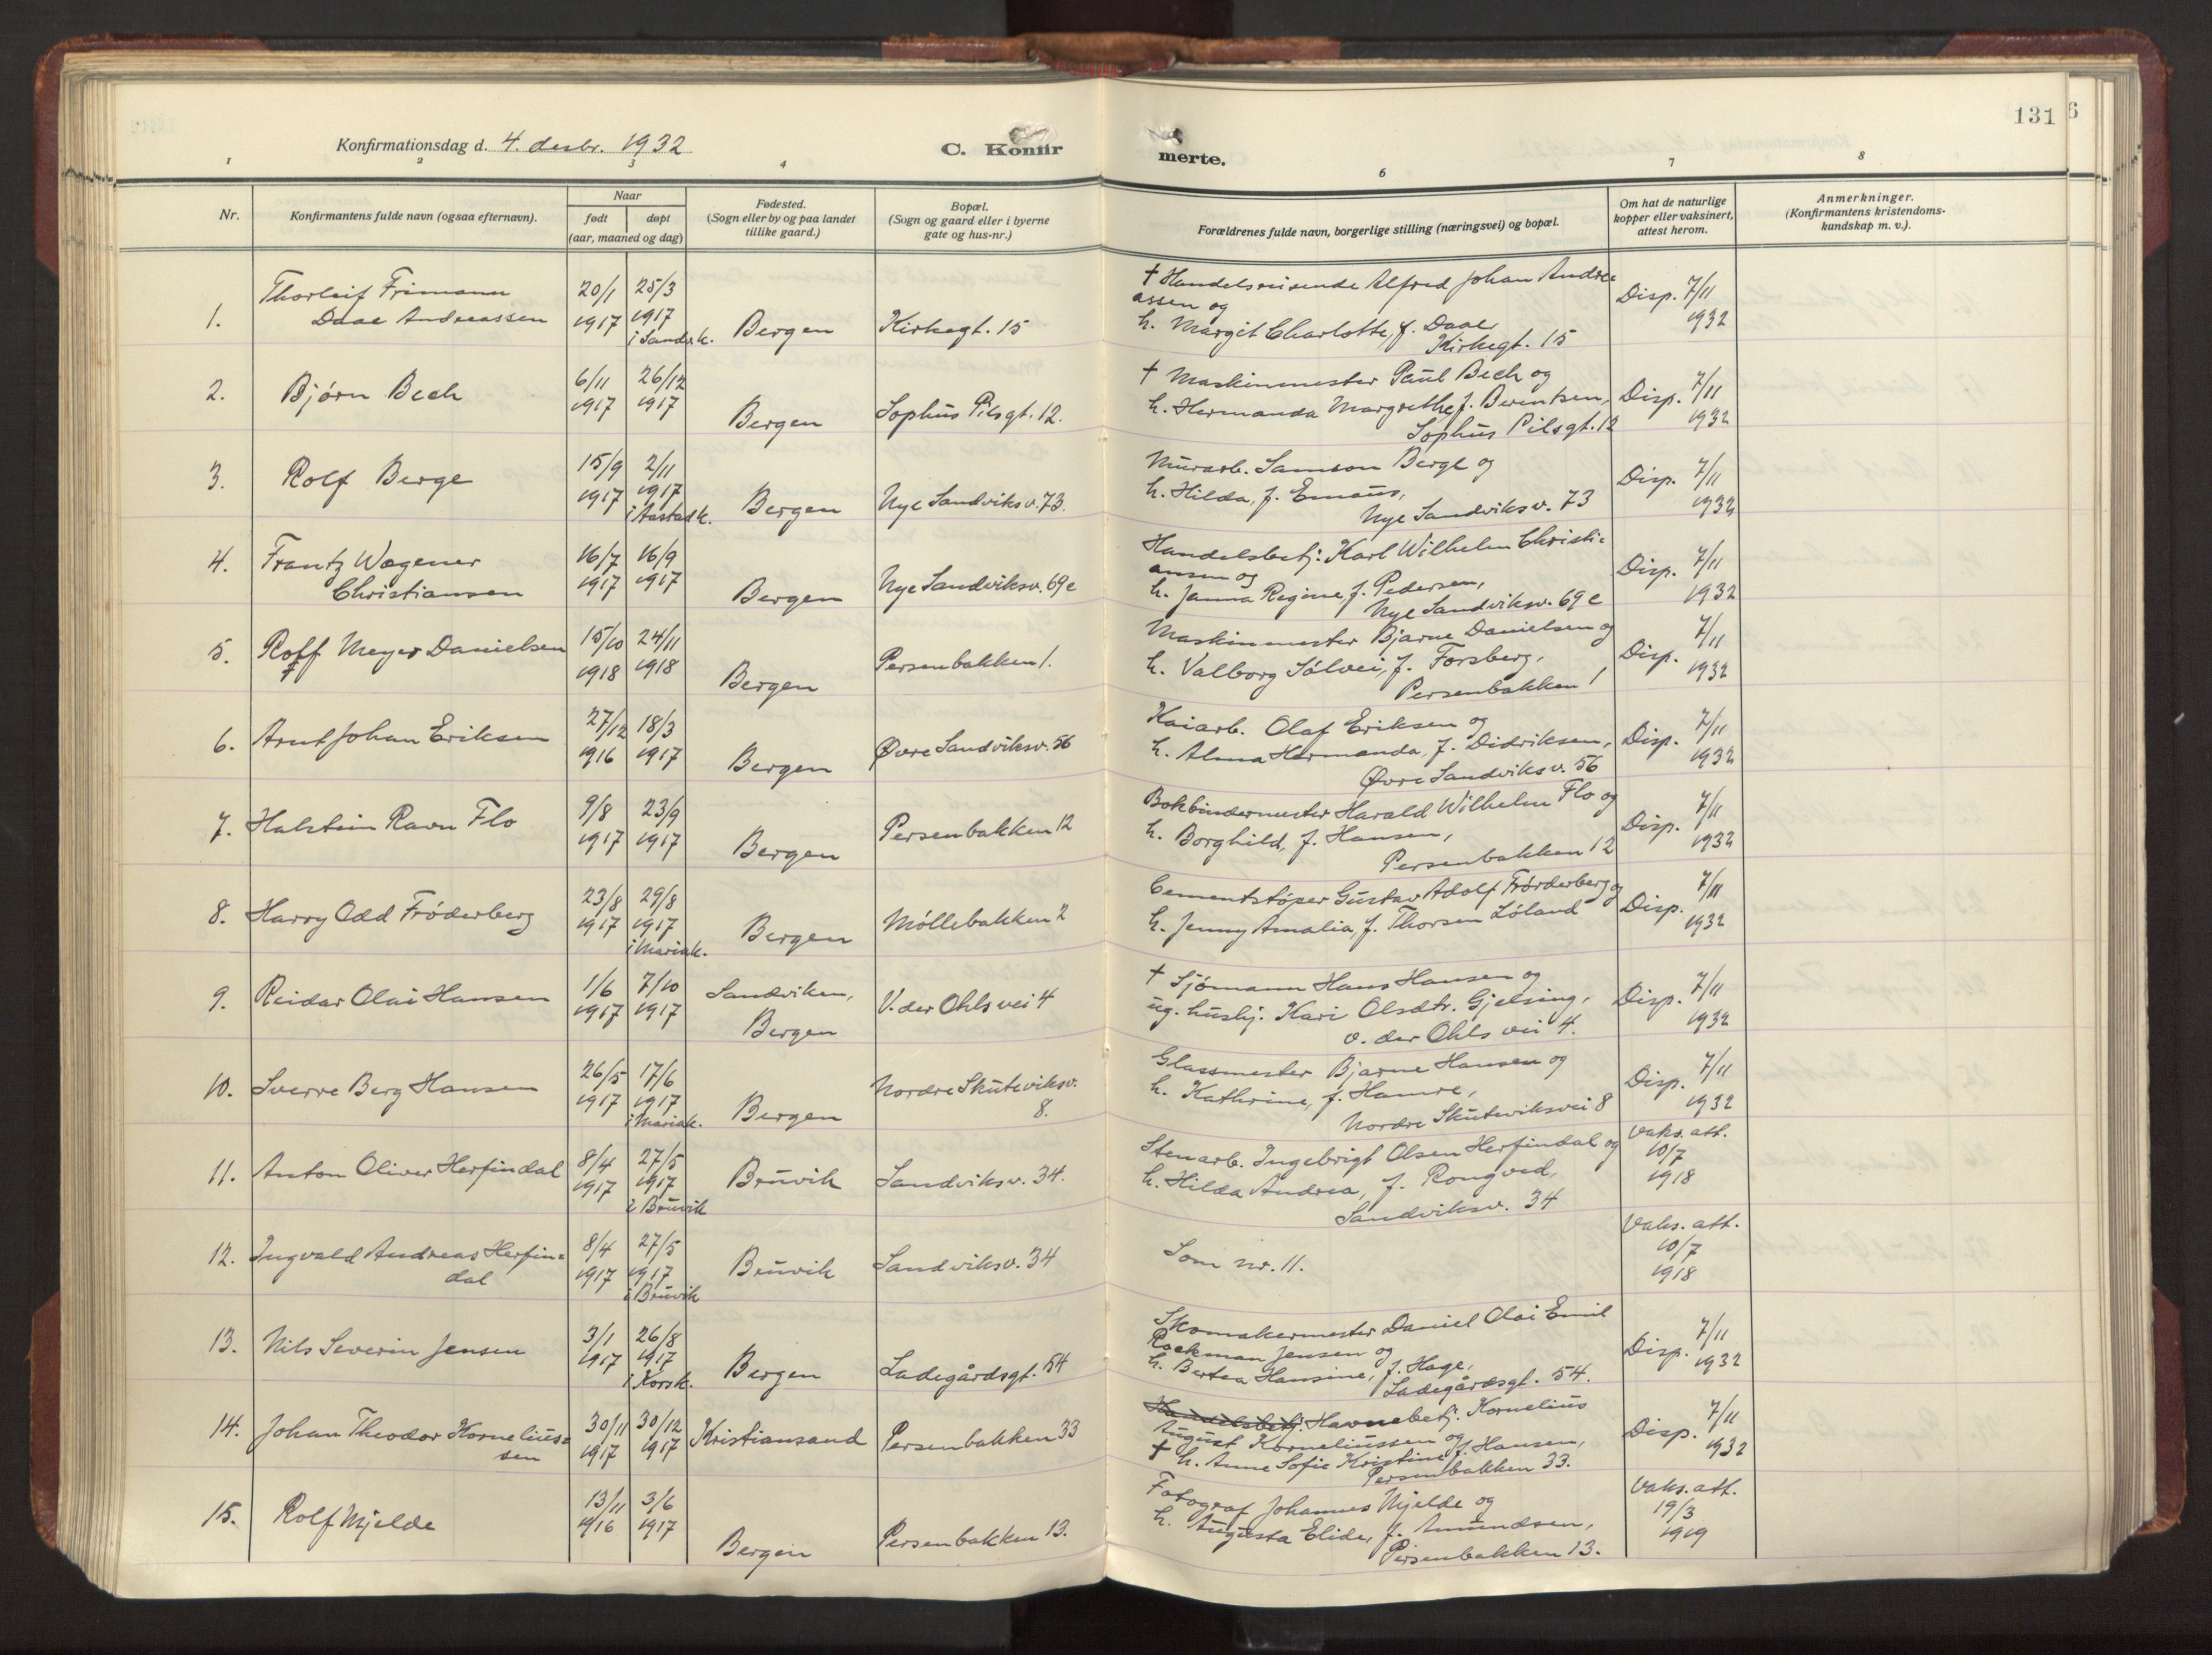 131
6
Konfirmationsdag d. 4. desbr. 1932
C. Konfir
merte.
1
2
3
4
6
7
8
Nr.
Konfirmantens fulde navn (ogsaa efternavn).
Naar
født
døpt
(aar, maaned og dag)
Fødested.
(Sogn eller by og paa landet
tillike gaard.)
Bopæl.
(Sogn og gaard eller i byerne
gate og hus-nr.)
Forældrenes fulde navn, borgerlige stilling (næringsvei) og bopæl.
Om hat de naturlige
kopper eller vaksinert,
attest herom.
Anmerkninger.
(Konfirmantens kristendoms-
kundskap m. v.).
1.
Thorleif Frimann
Daae Andreassen
20/1
1917
25/3
1917
i Sandvk.
Bergen
Kirkegt. 15
† Handelsreisende Alfred Johan Andre=
assen og
h. Margit Charlotte, f. Daae,
Kirkegt. 15
Disp. 7/11
1932
2.
Bjørn Bech
6/11
1917
26/12
1917
Bergen
Sophus Pilsgt. 12.
† Maskinmester Paul Bech og
h. Hermanda Margrethe f. Berentsen,
Sophus Pilsgt. 12
Disp. 7/11
1932
3.
Rolf Berge
15/9
1917
2/11
1917
i Aastadk.
Bergen
Nye Sandviksv. 73.
Murarb. Samson Berge og
h. Hilda, f. Emaus,
Nye Sandviksv. 73
Disp. 7/11
1932
4.
Frantz Wagener
Christiansen
16/7
1917
16/9
1917
Bergen
Nye Sandviksv. 69c
Handelsbetj. Karl Wilhelm Christi=
ansen og
h. Janna Regine, f. Pedersen,
Nye Sandviksv. 69c
Disp. 7/11
1932
5.
Rolf Meyer Danielsen
15/10
1918
24/11
1918
Bergen
Persenbakken 1.
Maskinmester Bjarne Danielsen og
h. Valborg Sólvei, f. Forsberg,
Persenbakken 1
Disp. 7/11
1932
6.
Arnt Johan Eriksen
27/12
1916
18/3
1917
Bergen
Øvre Sandviksv. 56
Kaiarb. Olaf Eriksen og
h. Alma Hermanda, f. Didriksen,
Øvre Sandviksv. 56
Disp. 7/11
1932
7.
Halstein Ravn Flo
9/8
1917
23/9
1917
Bergen
Persenbakken 12
Bokbindermester Harald Wilhelm Flo og
h. Borghild, f. Hansen,
Persenbakken 12
Disp. 7/11
1932
8.
Harry Odd Fróderberg
23/8
1917
29/8
1917
i Mariak.
Bergen
Móllebakken 2
Cementstóper Gustav Adolf Fróderberg og
h. Jenny Amalia, f. Thorsen Lóland
Disp. 7/11
1932
9.
Reidar Olai Hansen
1/6
1917
7/10
1917
Sandviken,
Bergen
V. der Ohls vei 4
† Sjómann Hans Hansen og
ug. husbj. Kari Olsdtr. Gjelsing,
v. der Ohls vei 4.
Disp. 7/11
1932
10.
Sverre Berg Hansen
26/5
1917
17/6
1917
i Mariak.
Bergen
Nordre Skuteviksv.
8.
Glassmester Bjarne Hansen og
h. Kathrine, f. Hamre,
Nordre Skuteviksvei 8
Disp. 7/11
1932
11.
Anton Oliver Herfindal
8/4
1917
27/5
1917
i Bruvik
Bruvik
Sandviksv. 34.
Stenarb. Ingebrigt Olsen Herfindal og
h. Hilda Andrea, f. Rongved,
Sandviksv. 34
Vaks. att.
10/7
1918
12.
Ingvald Andreas Herfin=
dal
8/4
1917
27/5
1917
i Bruvik
Bruvik
Sandviksv. 34
Som nr. 11.
Vaks. att.
10/7
1918
13.
Nils Severin Jensen
3/1
1917
26/8
1917
i Korsk.
Bergen
Ladegårdsgt. 54
Skomakermester Daniel Olai Emil
Rockman Jensen og
h. Bertea Hansine, f. Hage,
Ladegårdsgt. 54.
Disp. 7/11
1932
14.
Johan Theodor Kornelius=
sen
30/11
1917
30/12
1917
Kristiansand
Persenbakken 33
Handelsbetj. Havnebetj. Kornelius
August Korneliussen og
† h. Anne Sofie Kristine f. Hansen,
Persenbakken 33.
Disp. 7/11
1932
15.
Rolf Mjelde
13/11
1916
3/6
1917
Bergen
Persenbakken 13.
Fotograf Johannes Mjelde og
h. Augusta Elida, f. Amundsen,
Persenbakken 13.
Vaks. att.
19/3
1919